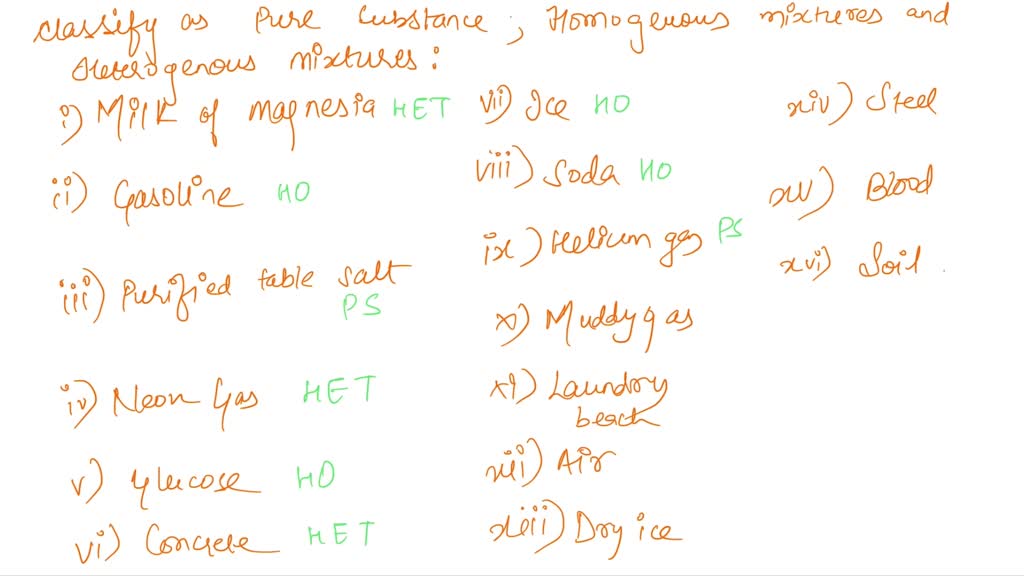 classify as Pure Substance ; Homogenous mixtures and
Heterogenous mixtures :
i) Milk of magnesia HET
ii) Gasoline HO
iii) Purified table salt
PS
iv) Neon Gas HET
v) Glucose HO
vi) Concrete HET
vii) Ice HO
viii) Soda HO
ix) Helium gas PS
x) Muddy gas
xi) Laundry
beach
xii) Air
xiii) Dry ice
xiv) Steel
xv) Blood
xvi) Soil